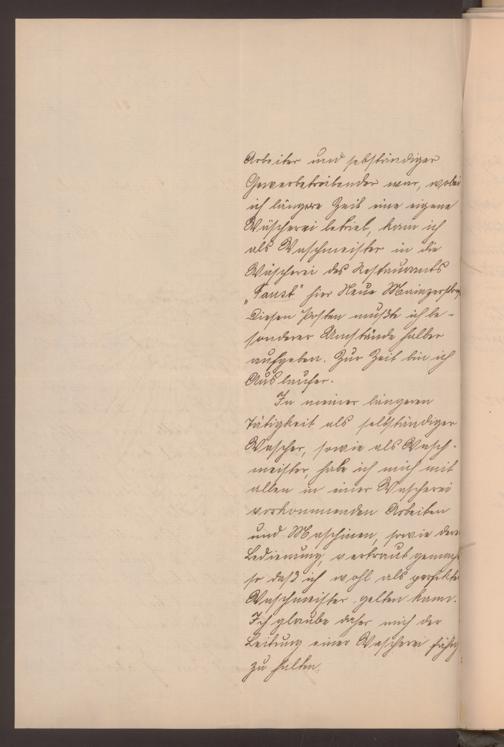 Arbeiter und sebständiger
Gewerbetreibender war, wobei
ich längere Zeit eine eigene
Wäscherei betrieb, kam ich
als Waschmeister in die
Wäscherei des Restaurants
„Faust" hier Neue Mainzerstr.
Diesen Posten mußte ich be-
sonderer Umstände halber
aufgeben. Zur Zeit bin ich
Ausläufer.
In meiner längeren
Tätigkeit als selbständiger
Wascher, sowie als Wasch-
meister, habe ich mich mit
allen in einer Wascherei
vorkommenden Arbeiten
und Maschinen, sowie deren
Bedienung, vertraut gemacht
so daß ich wohl als perfekter
Waschmeister gelten kann.
Ich glaube daher mich der
Leitung einer Wascherei fähig
zu halten.